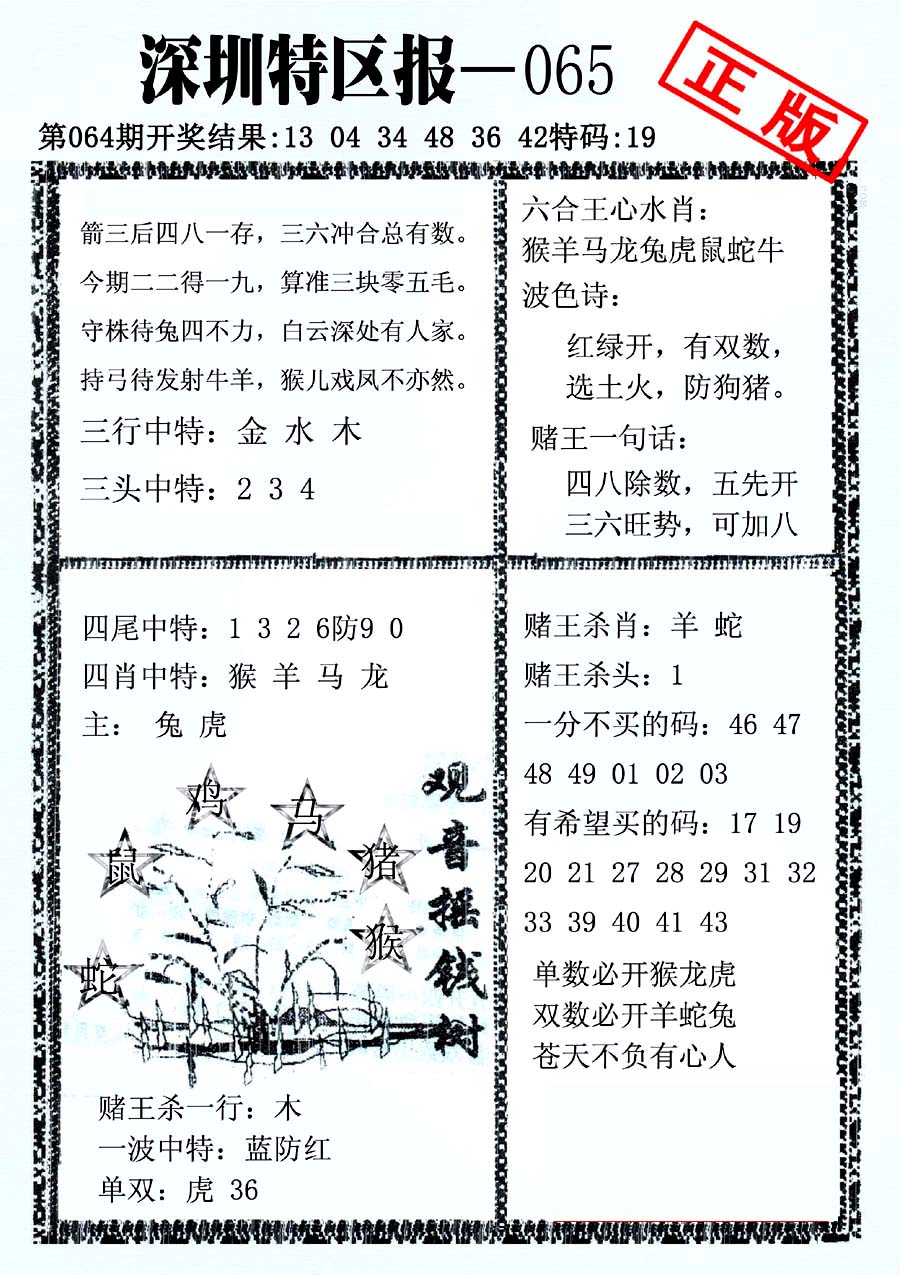 深圳特区报—065
正版
第064期开奖结果:13 04 34 48 36 42特码:19
箭三后四八一存，三六冲合总有数。
今期二二得一九，算准三块零五毛。
守株待兔四不力，白云深处有人家。
持弓待发射牛羊，猴儿戏凤不亦然。
三行中特：金 水 木
三头中特：2 3 4
六合王心水肖：
猴羊马龙兔虎鼠蛇牛
波色诗：
红绿开，有双数，
选土火，防狗猪。
赌王一句话：
四八除数，五先开
三六旺势，可加八
四尾中特：1 3 2 6防9 0
四肖中特：猴 羊 马 龙
主： 兔 虎
鸡
马
鼠
猪
猴
蛇
观音摇钱树
赌王杀一行：木
一波中特：蓝防红
单双：虎 36
赌王杀肖：羊 蛇
赌王杀头：1
一分不买的码：46 47
48 49 01 02 03
有希望买的码：17 19
20 21 27 28 29 31 32
33 39 40 41 43
单数必开猴龙虎
双数必开羊蛇兔
苍天不负有心人